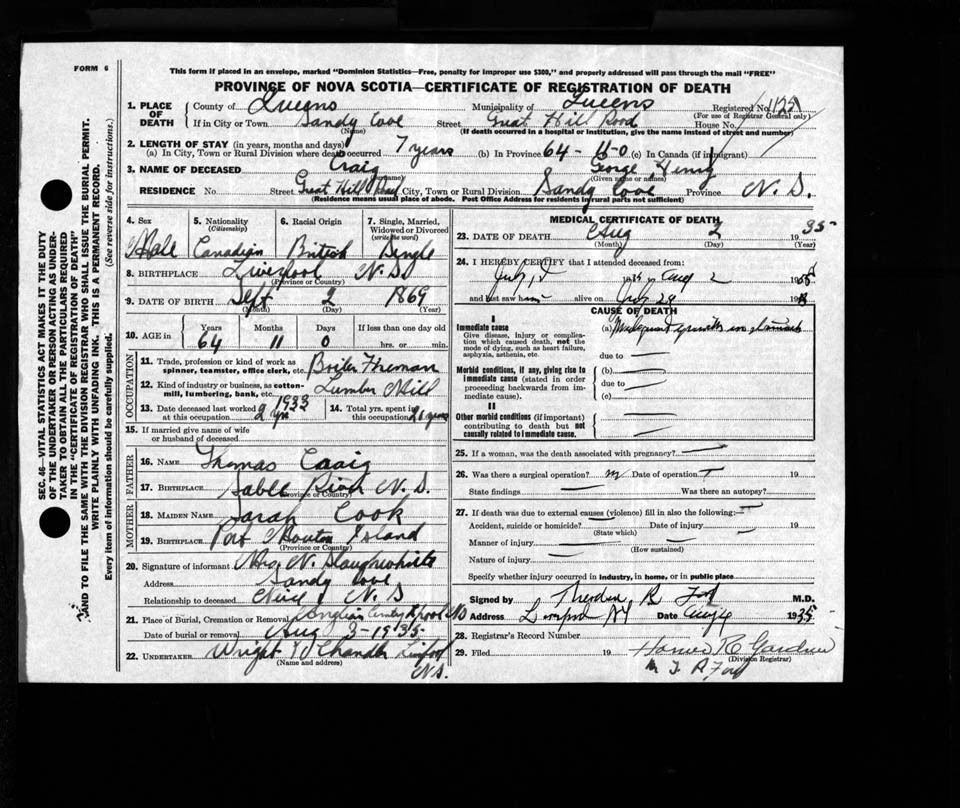 FORM 6
This form if placed in an envelope, marked "Dominion Statistics—Free, penalty for improper use $300," and properly addressed will pass through the mail "FREE"
PROVINCE OF NOVA SCOTIA—CERTIFICATE OF REGISTRATION OF DEATH
SEC. 46—VITAL STATISTICS ACT MAKES IT THE DUTY
OF THE UNDERTAKER OR PERSON ACTING AS UNDER-
TAKER TO OBTAIN ALL THE PARTICULARS REQUIRED
IN THE "CERTIFICATE OF REGISTRATION OF DEATH"
AND TO FILE THE SAME WITH THE DIVISION REGISTRAR WHO SHALL ISSUE THE BURIAL PERMIT.
WRITE PLAINLY WITH UNFADING INK. THIS IS A PERMANENT RECORD.
Every item of information should be carefully supplied. (See reverse side for instructions.)
1. PLACE OF DEATH County of Queens Municipality of Queens Registered No.
(For use of Registrar General only)
If in City or Town Sandy Cove Street Great Hill Road House No.
(Name) (If death occurred in a hospital or institution, give the name instead of street and number)
2. LENGTH OF STAY (in years, months and days)
(a) In City, Town or Rural Division where death occurred 7 years (b) In Province 64-11-0 (c) In Canada (if immigrant)
3. NAME OF DECEASED Craig Gorge Henry
(name) (Given name or names)
RESIDENCE No. Street Great Hill Road City, Town or Rural Division Sandy Cove Province N. S.
(Residence means usual place of abode. Post Office Address for residents in rural parts not sufficient)
4. Sex 5. Nationality 6. Racial Origin 7. Single, Married,
(Citizenship) Widowed or Divorced
(write the word)
Male Canadian British Single
8. BIRTHPLACE Liverpool N. S.
(Province or Country)
9. DATE OF BIRTH Sept 2 1869
(Month) (Day) (Year)
10. AGE in Years Months Days If less than one day old
64 11 0 hrs. or min.
OCCUPATION
11. Trade, profession or kind of work as
spinner, teamster, office clerk, etc. Boiler Fireman
12. Kind of industry or business, as cotton-
mill, lumbering, bank, etc. Lumber Mill
13. Date deceased last worked 1933 14. Total yrs. spent in
at this occupation 2 yrs this occupation
15. If married give name of wife
or husband of deceased
FATHER
16. NAME Thomas Craig
17. BIRTHPLACE Sable River N. S.
(Province or Country)
MOTHER
18. MAIDEN NAME Sarah Cook
19. BIRTHPLACE Port Mouton Island
(Province or Country)
20. Signature of informant Mrs. N. Slaughwhite
Address Sandy Cove
Relationship to deceased Niece N. S
21. Place of Burial, Cremation or Removal
Date of burial or removal Aug 3-1935
22. UNDERTAKER Wright
(Name and address)
N.S.
MEDICAL CERTIFICATE OF DEATH
23. DATE OF DEATH Aug 2 1935
(Month) (Day) (Year)
24. I HEREBY CERTIFY that I attended deceased from:
July 19 to Aug 2 19
and last saw him alive on July 29 19
CAUSE OF DEATH
I
Immediate cause (a)
Give disease, injury or complica-
tion which caused death, not the
mode of dying, such as heart failure,
asphyxia, asthenia, etc. due to
Morbid conditions, if any, giving rise to (b)
immediate cause (stated in order due to
proceeding backwards from im-
mediate cause). (c)
II
Other morbid conditions (if important)
contributing to death but not
causally related to immediate cause.
25. If a woman, was the death associated with pregnancy?
26. Was there a surgical operation? Date of operation 19
State findings Was there an autopsy?
27. If death was due to external causes (violence) fill in also the following:
Accident, suicide or homicide? Date of injury 19
(State which)
Manner of injury
(How sustained)
Nature of injury
Specify whether injury occurred in industry, in home, or in public place
Signed by M.D.
Address Date Aug 1935
28. Registrar's Record Number
29. Filed 19 Homer R Gardner
(Division Registrar)